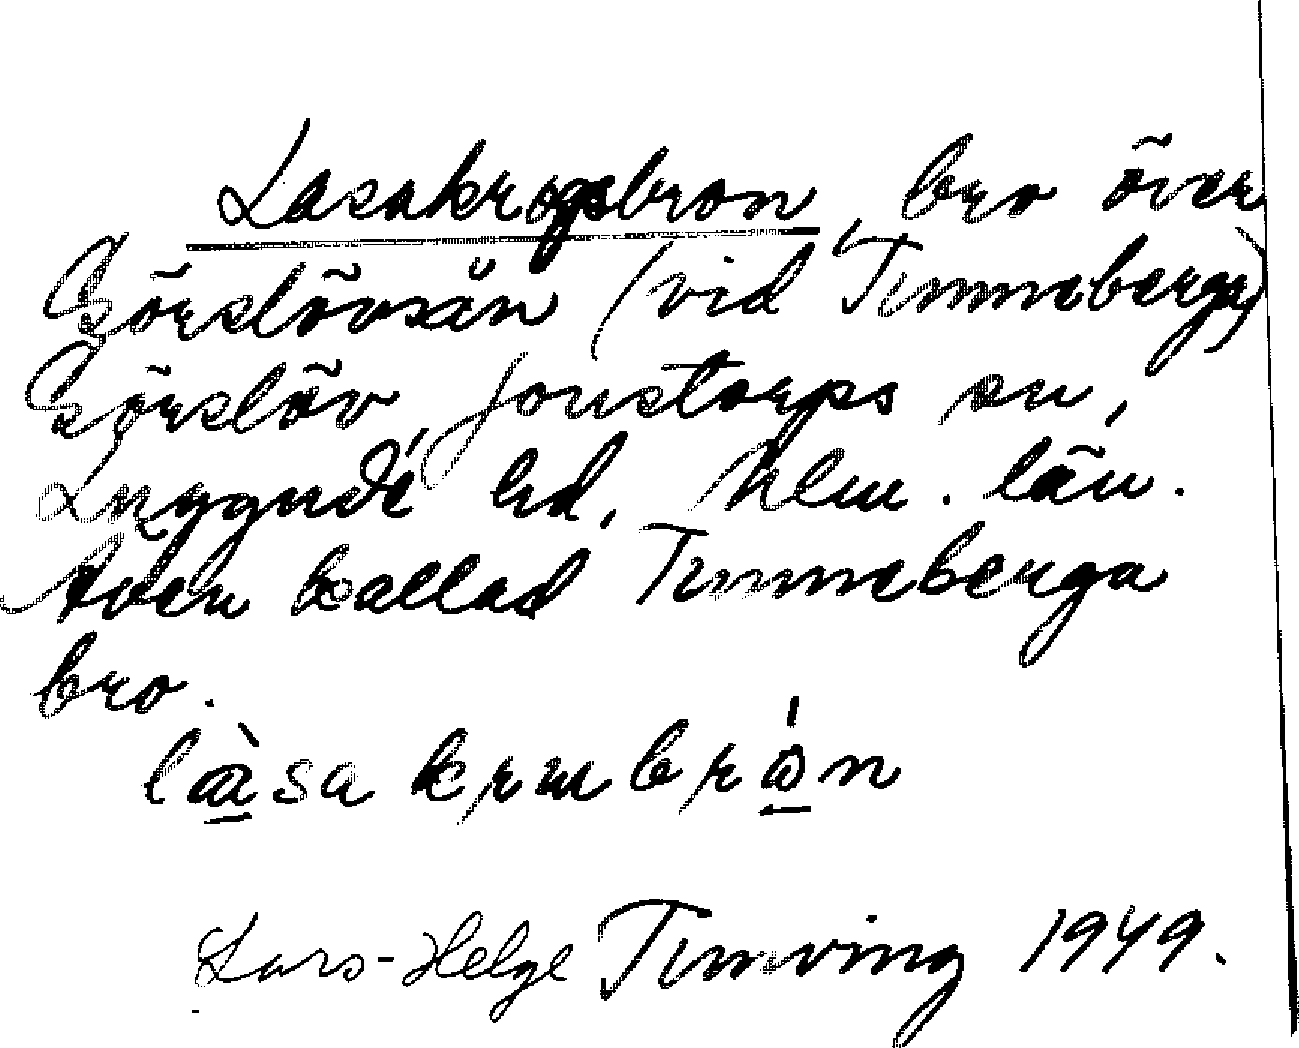 Lasakrogsbron, bro över
Görslövsån (vid Tunneberga)
Görslöv, Jonstorps sn,
Luggude hd, Mlm. län.
Även kallad Tunneberga
bro.
Lars-Helge Tunving 1949.